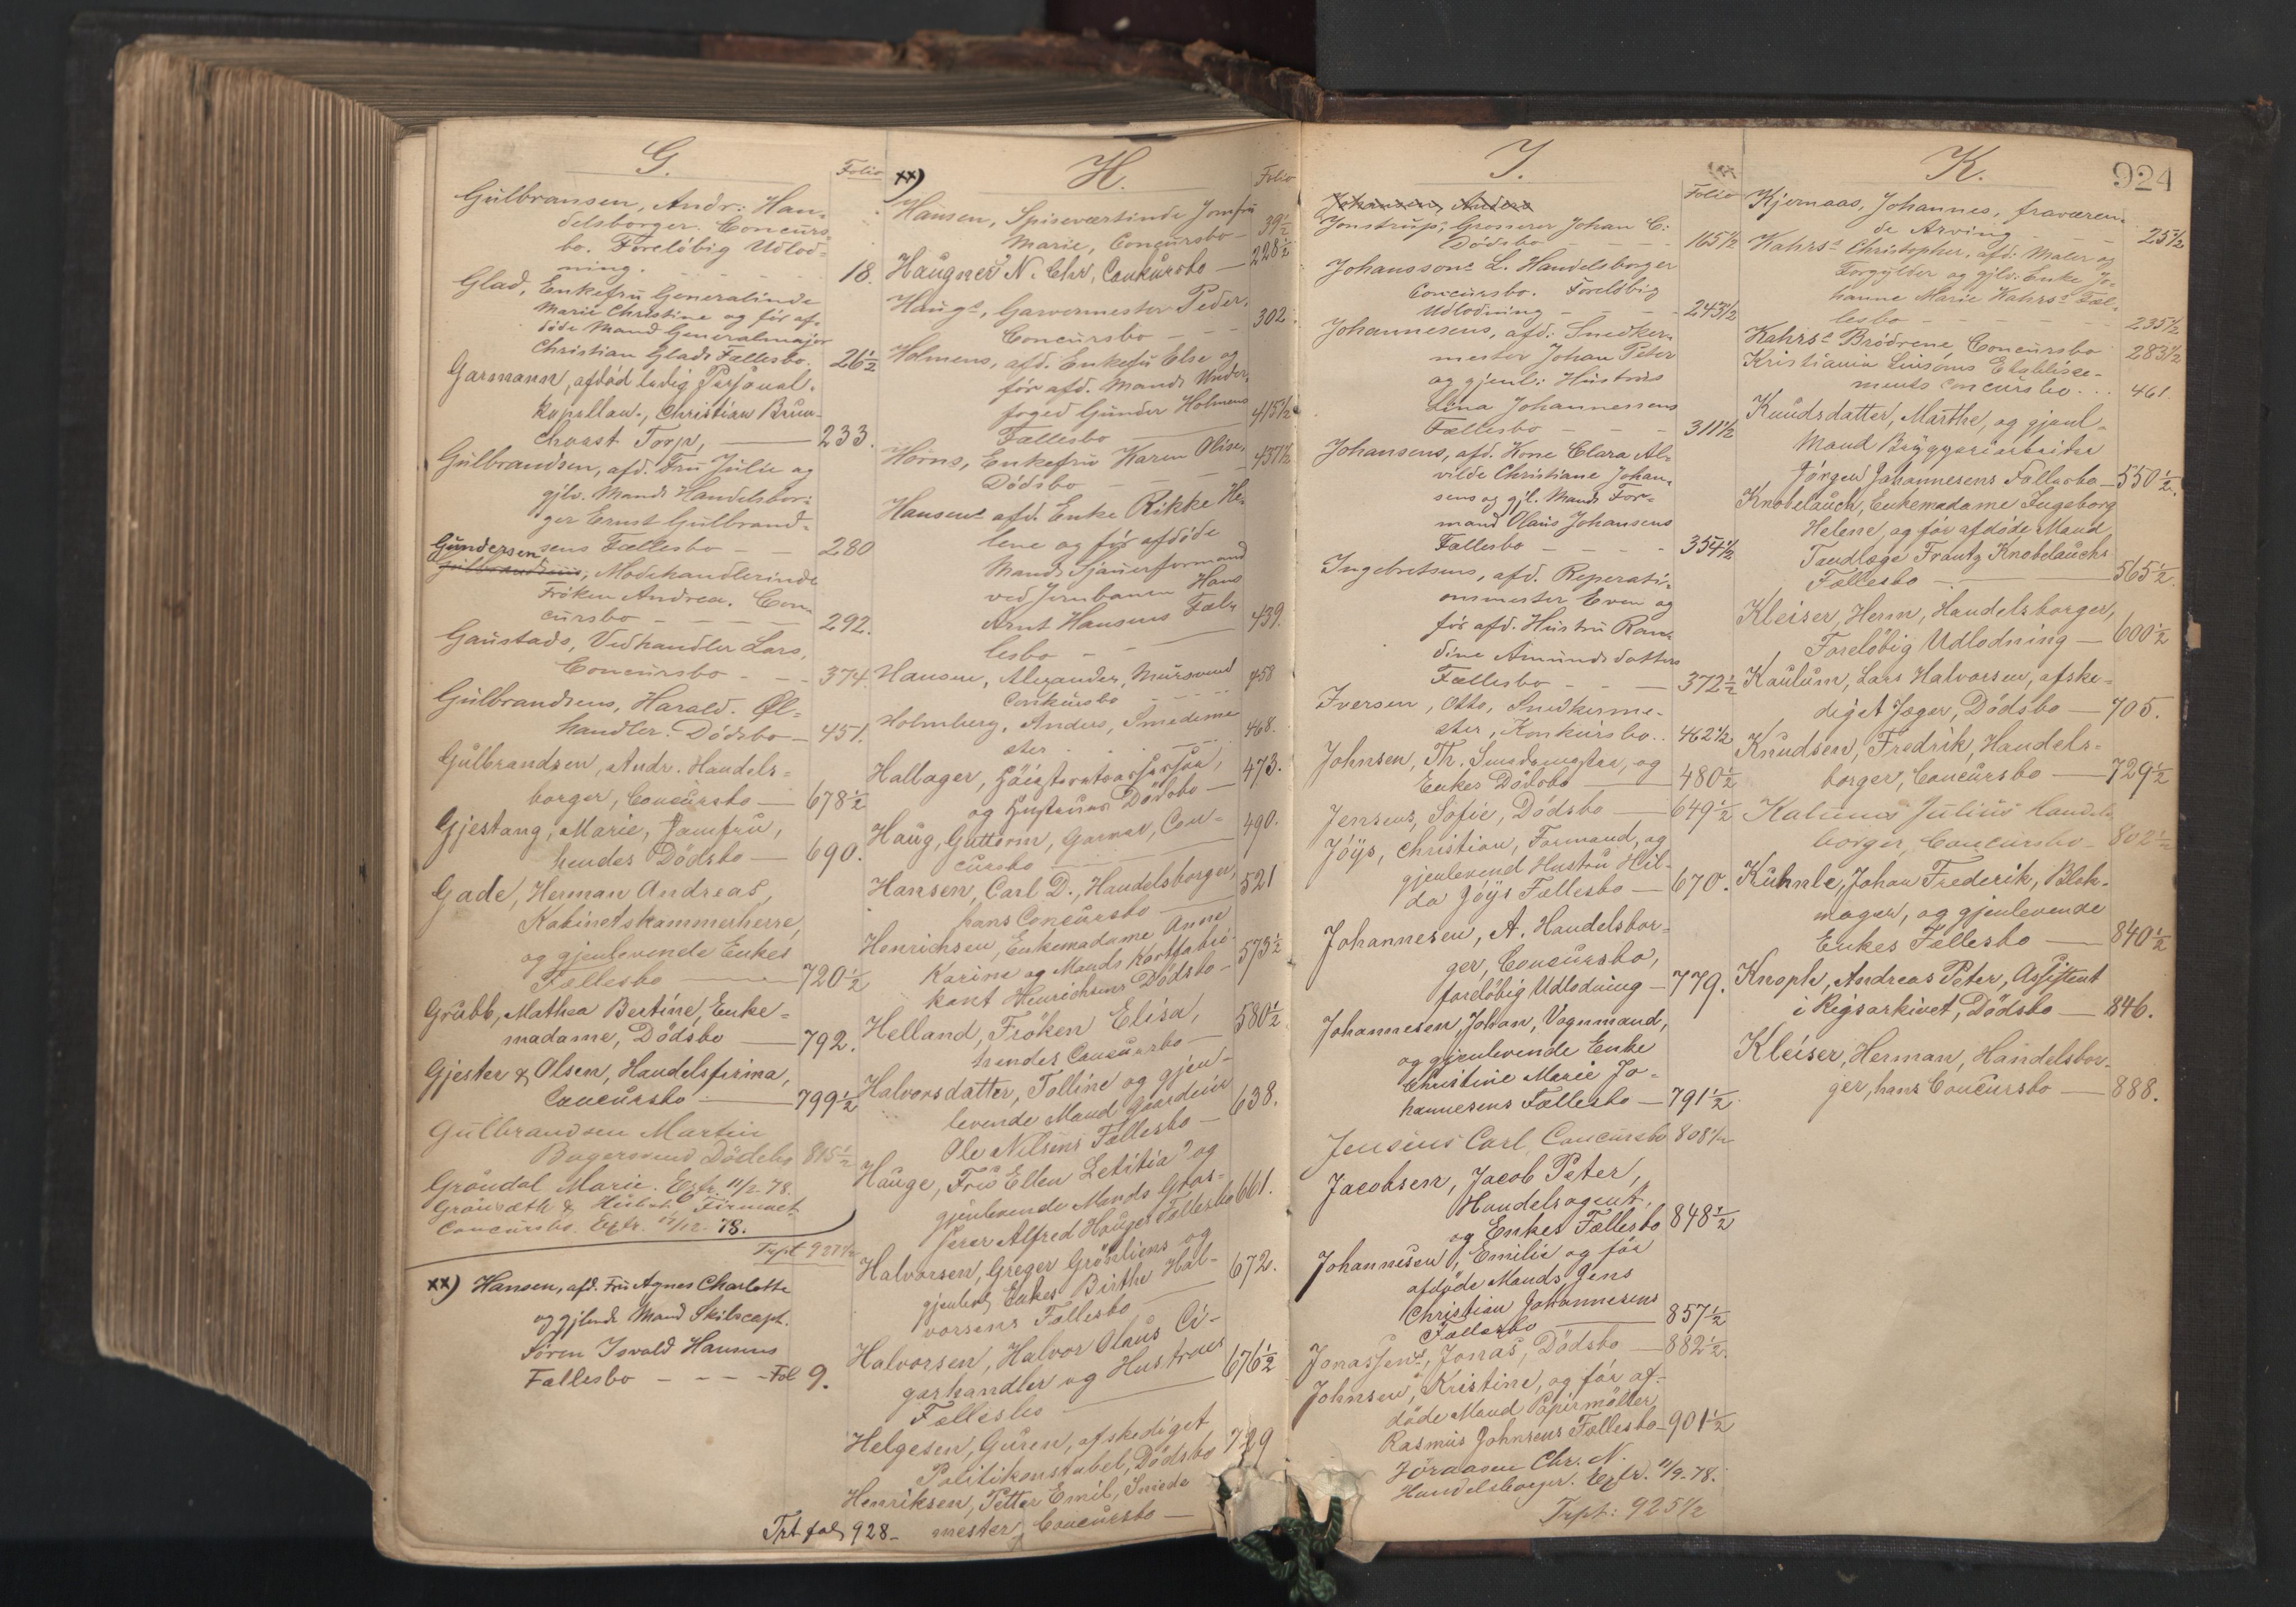 G.
Folio
Gulbransen, Andr: Han-
delsborger. Concurs-
bo. Foreløbig Udlod-
ning. - - - - 18.
Glad, Enkefru Generalinde
Marie Christine og før af-
døde Mand Generalmajor
Christian Glads Fællesbo. 26½
Garmann, afdød ledig Personal-
kapellan, Christian Brun-
chorst Torp, — 233.
Gulbrandsen, afd. Fru Julie og
gjlv. Mands Handelsbor-
ger Ernst Gulbrand-
sens Fællesbo - - 280
Gundersen
Gulbrandsens, Modehandlerinde
Frøken Andrea. Con-
cursbo - - - - 292.
Gaustads, Vedhandler Lars,
Concursbo - - - 374.
Gulbrandsens, Harald. Øl-
handler. Dødsbo - 451.
Gulbrandsen, Andr. Handels-
borger, Concursbo — 678½
Gjestang, Marie, Jomfru,
hendes Dødsbo — 690.
Gade, Herman Andreas,
Kabinetskammerherre,
og gjenlevende Enkes
Fællesbo — 720½
Grubb, Mathea Bertine, Enke-
madame, Dødsbo — 792.
Gjester & Olsen, Handelsfirma,
Concursbo — 799½
Gulbrandsen Martin
Bagersvend Dødsbo 815½
Grøndal Marie. Extr. 11/2-78.
Concursbo. Extr. 17/12-78.
xx) Hansen, afd. Fru Agnes Charlotte
og gjlvnde Mand Skibscapt.
Søren Isvald Hansens
Fællesbo - - - Fol 9.
xx)
H.
Folio
Hansen, Spiseværtinde Jomfru
Marie, Concursbo - 39½
Haugner N. Chr, Conkursbo — 228½
Haugs, Garvermester Peder,
Concursbo - - 302.
Holmens, afd. Enkefru Else og
før afd. Mands Under-
foged Gunder Holmens
Fællesbo 415½
Horns, Enkefru Karen Olise,
Dødsbo - - - 437½
Hansens afd. Enke Rikke He-
lene og før afdøde
Mands Sjauerformand
ved Jernbanen Hans
Arnt Hansens Fæl-
lesbo - - 439.
Hansen, Alexander, Murersvend
Conkursbo - - - - 458
Holmberg, Anders, Smedeme-
ster . . . . 468.
Hallager, Höiesteretsassessor,
og Hustrues Dødsbo — 473.
Haug, Guttorm, Garver, Con-
cursbo — 490.
Hansen, Carl D., Handelsborger,
hans Concursbo — 521
Henrichsen, Enkemadame Anne
Karine og Mands Kortfabri-
kant Henrichsens Dødsbo - 573½
Helland, Frøken Elisa,
hendes Concursbo — 580½
Halvorsdatter, Tolline og gjen-
levende Mand Gaardeier
Ole Nilsens Fællesbo — 638.
Hauge, Fru Ellen Letitia og
gjenlevende Mands Gros-
serer Alfred Hauges Fællesbo 661.
Halvorsen, Greger Grønliens og
gjenlev. Enkes Birthe Hal-
vorsens Fællesbo — 672.
Halvorsen, Halvor Olaus Ci-
garhandler og Hustrues
Fællesbo — 676½
Helgesen, Guren, afskediget
Politikonstabel, Dødsbo 729
Henriksen, Petter Emil, Smede
mester, Concursbo —
Trt fol 928-
I.
Folio
Johansen, Anders
Jonstrups, Grosserer Johan C:
Dødsbo - - - - 165½
Johanssons L. Handelsborger
Concursbo. Foreløbig
Udlodning - - - - 243½
Johannesens, afd: Snedker-
mester Johan Peter
og gjenl: Hustrus
Lina Johannessens
Fællesbo - - - - 311½
Johansens, afd. Kone Clara Al-
vilde Christiane Johan-
sens og gjl. Mands For-
mand Olaus Johansens
Fællesbo - - - - 354½
Ingebretsens, afd. Reperati-
onsmester Even og
før afd. Hustru Ran-
dine Amundsdatters
Fællesbo - - - 372½
Iversen, Otto, Snedkerme-
ster, Konkursbo.. 462½
Johnsen, Th. Smedemester, og
Enkes Dødsbo — 480½
Jensens, Sofie, Dødsbo — 649½
Jøys, Christian, Formand, og
gjenlevend Hustru Hil-
da Jøys Fællesbo — 670.
Johannesen, A. Handelsbor-
ger, Concursbo,
foreløbig Udlodning — 779.
Johannesen, Johan, Vognmand,
og gjenlevende Enke
Christine Marie Jo-
hannesens Fællesbo — 791½
Jensens Carl, Concursbo 808½
Jacobsen, Jacob Peter,
Handelsagent,
og Enkes Fællesbo 848½
Johannesen, Emilie og før
afdøde Mands Jens
Christian Johannesens
Fællesbo — 857½
Jonassens, Jonas, Dødsbo — 882½
Johnsen, Kristine, og før af-
døde Mand Papirmøller
Rasmus Johnsens Fællesbo - 901½
Jöraasen Chr. N.
Handelsborger. Extr. 11/9-78.
Trpt: 925½
K.
924
Kjernaas, Johannes, fraværen-
de Arving - - - 25½
Kahrs Christopher, afd: Maler og
Forgylder og gjlv: Enke Jo-
hanne Marie Kahrs Fæl-
lesbo - - - - 235½
Kahrs Brødrene Concursbo 283½
Kristiania Linsøms Etablisse-
ments Concursbo . . . 461.
Knudsdatter, Marthe, og gjenl-
Mand Bryggeriarbeider
Jørgen Johannesens Fællesbo — 550½
Knobelauch, Enkemadame Ingeborg
Helene, og før afdøde Mand
Tandlæge Frantz Knobelauchs
Fællesbo — 565½
Kleiser, Herm, Handelsborger,
Foreløbig Udlodning — 600½
Kaulum, Lars Halvorsen, afske-
diget Jæger, Dødsbo — 705.
Knudsen, Fredrik, Handels-
borger, Concursbo — 729½
Julius Handels
borger, Concursbo - 802½
Kühnle, Johan Frederik, Blok-
mager, og gjenlevende
Enkes Fællesbo — 840½
Knoph, Andreas Peter, Assistent
i Rigsarkivet, Dødsbo — 846.
Kleiser, Herman, Handelsbor-
ger, hans Concursbo — 888.